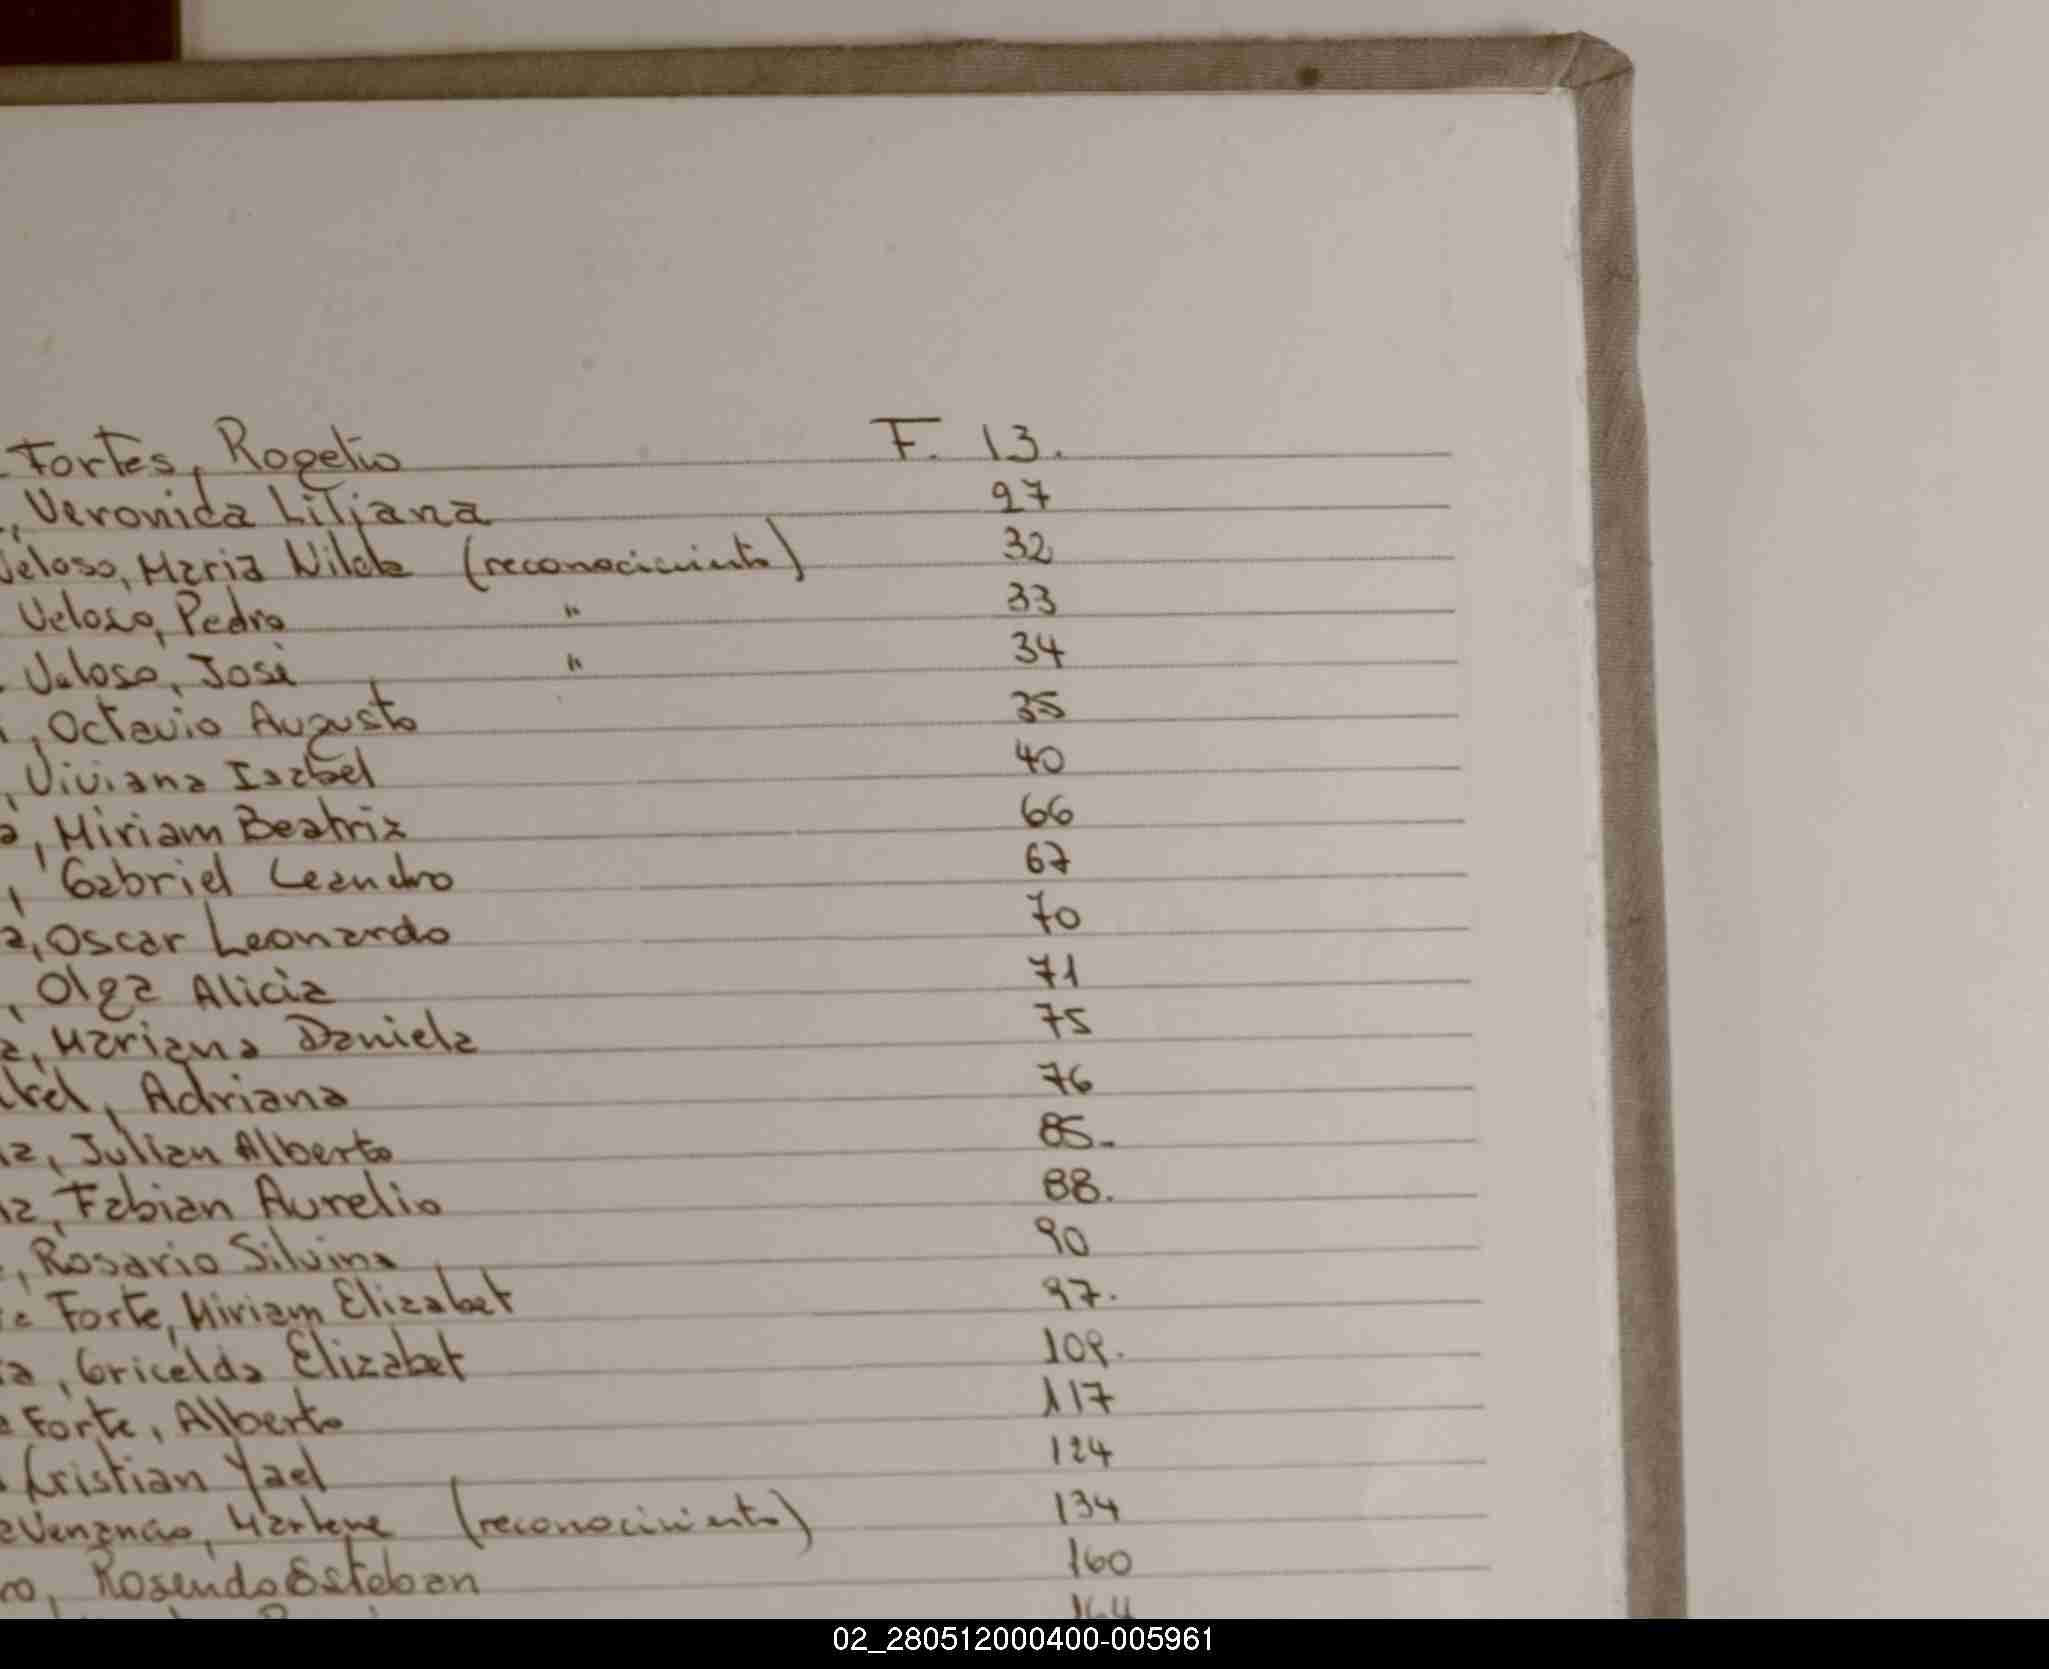 Fortes, Rogelio F. 13.
, Veronida Liliana 27
Veloso, Maria Nilda (reconocimiento) 32
Veloso, Pedro " 33
Veloso, José " 34
, Octavio Augusto 35
, Viviana Isabel 40
a, Miriam Beatriz 66
, Gabriel Leandro 67
a, Oscar Leonardo 70
, Olga Alicia 71
a, Mariana Daniela 75
, Adriana 76
a, Julian Alberto 85.
a, Fabian Aurelio 88.
, Rosario Silvina 90
Forte, Miriam Elizabet 97.
a, Gricelda Elizabet 109.
Forte, Alberto 117
Cristian Yael 124
Venancio, Marlene (reconocimiento) 134
ro, Rosendo Esteban 160
164
02_280512000400-005961